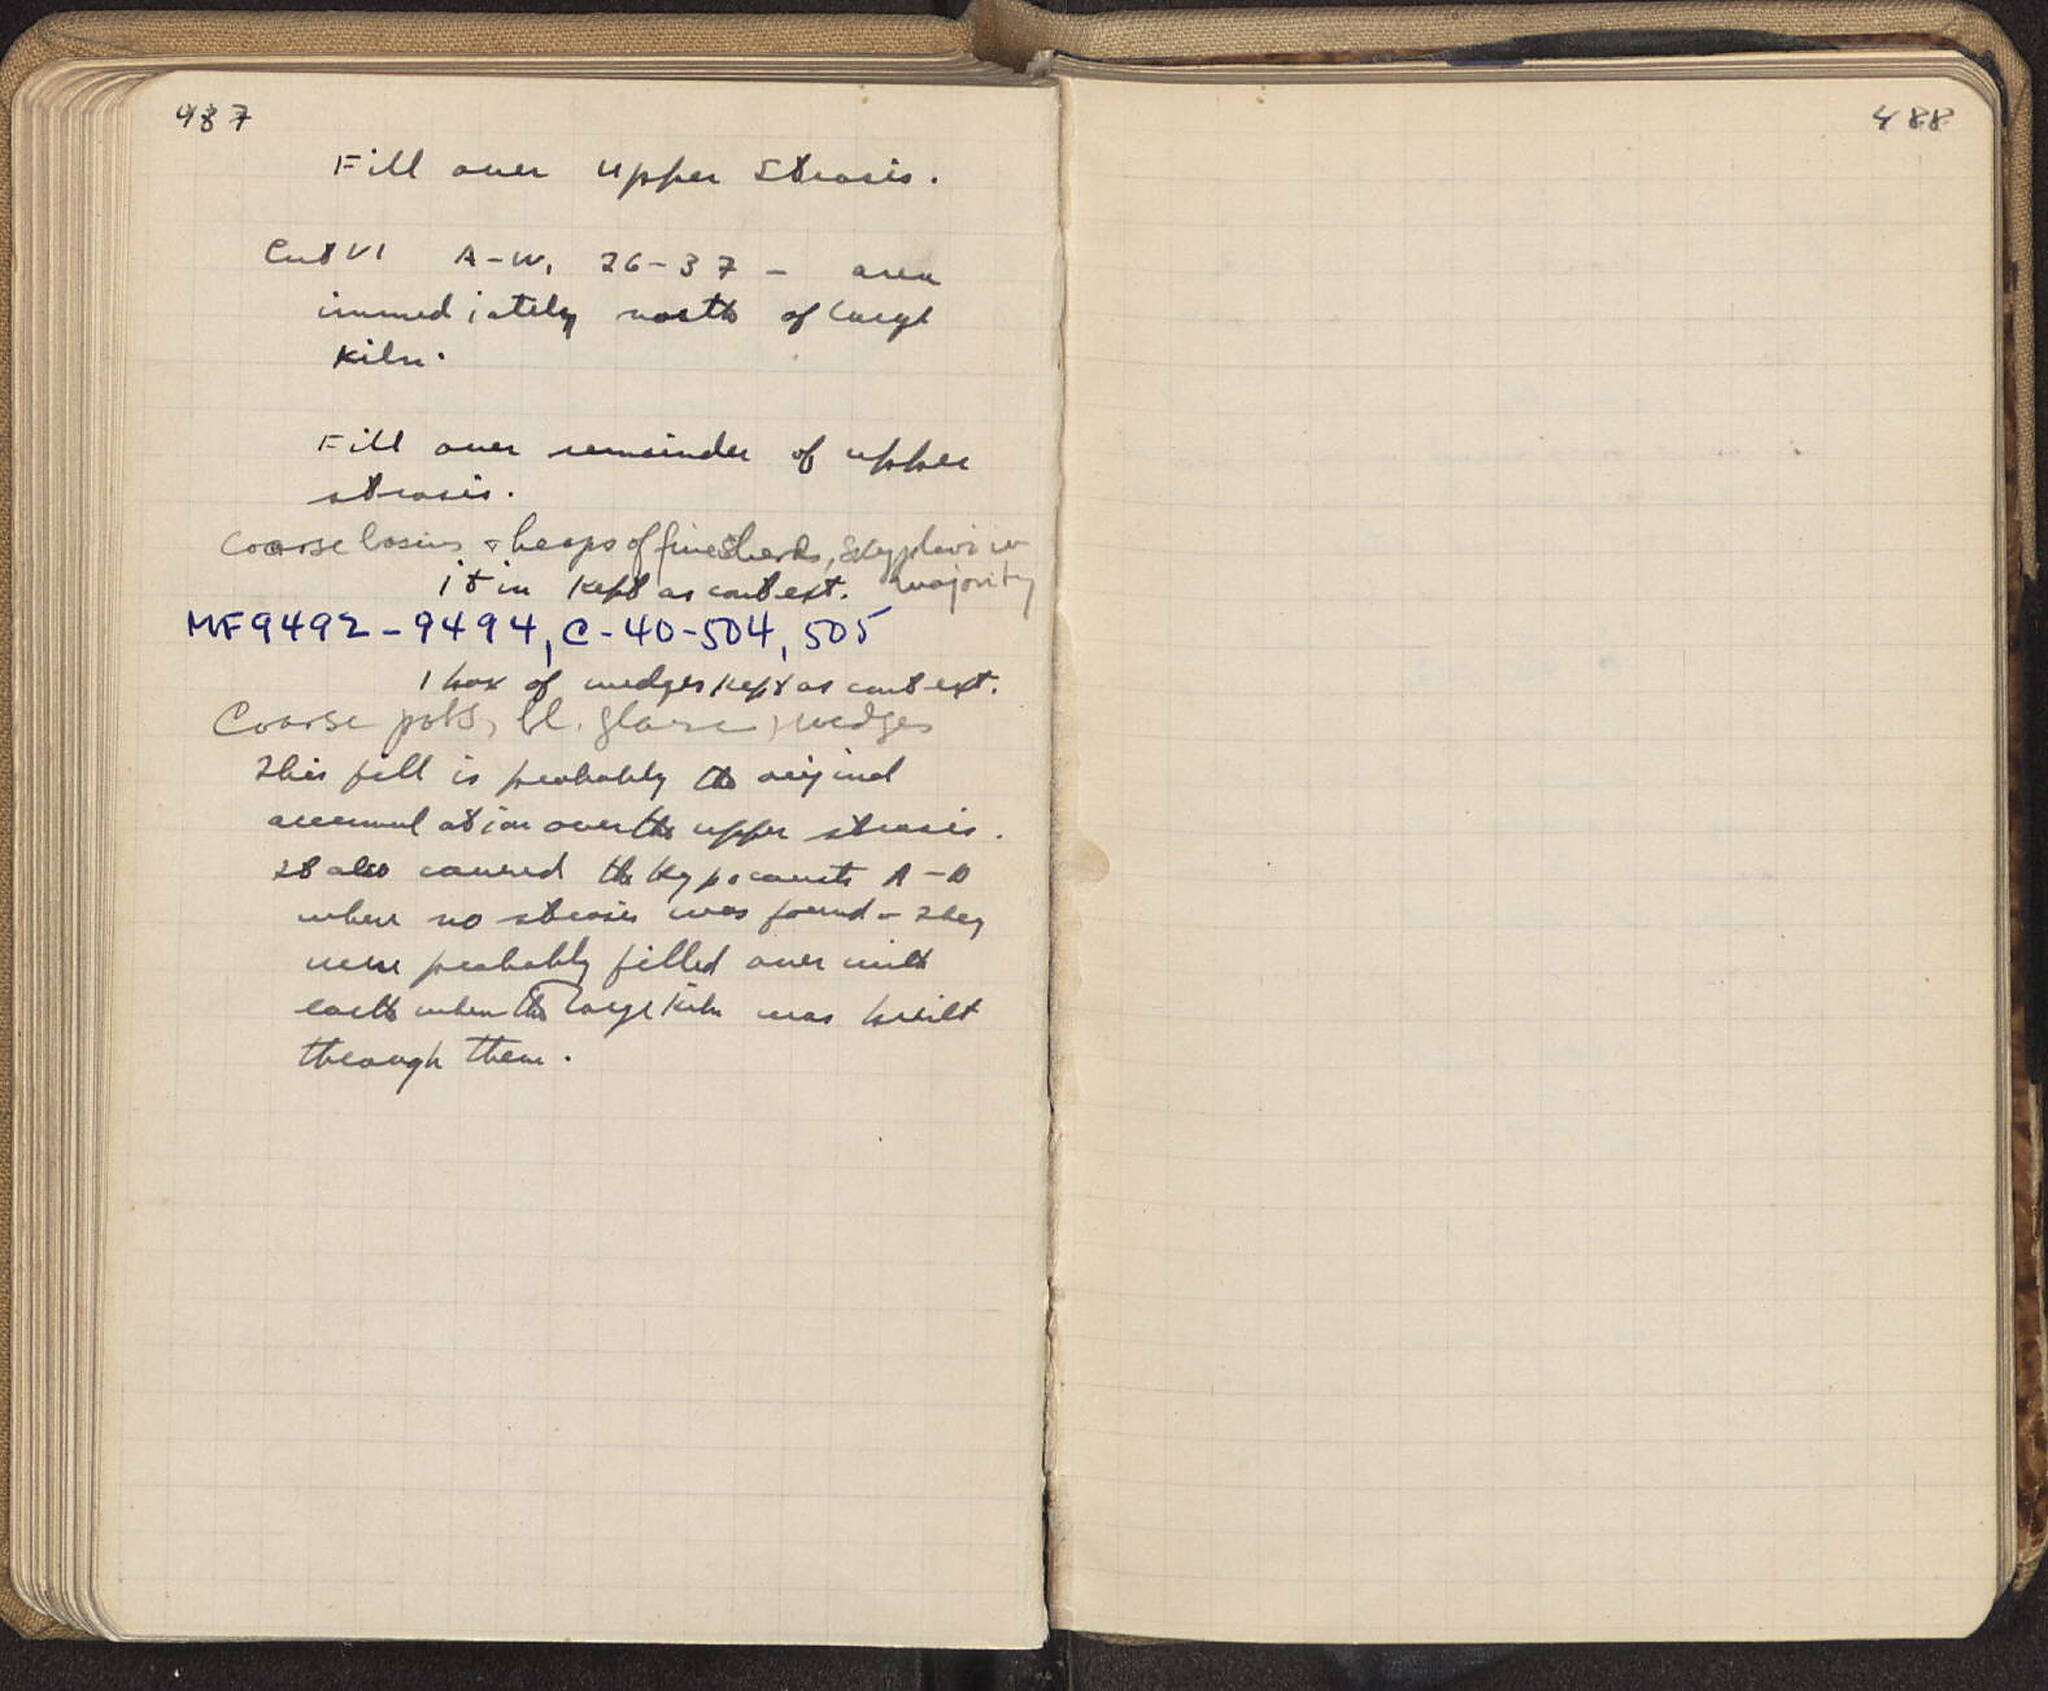 487
Fill over upper Strosis.
Cut VI A-W, 26-37 - area
immediately north of large
kiln.
Fill over remainder of upper
strosis.
Coarse basins & heaps of fine sherds, skyphoi in
majority
1 tin kept as context.
MF9492-9494, C-40-504, 505
1 box of wedges kept as context.
Coarse pots, bl. glaze, wedges
This fill is probably the original
accumulation over the upper strosis.
It also covered the hypocausts A-D
where no strosis was found - they
were probably filled over with
earth when the large kiln was built
through them.
488